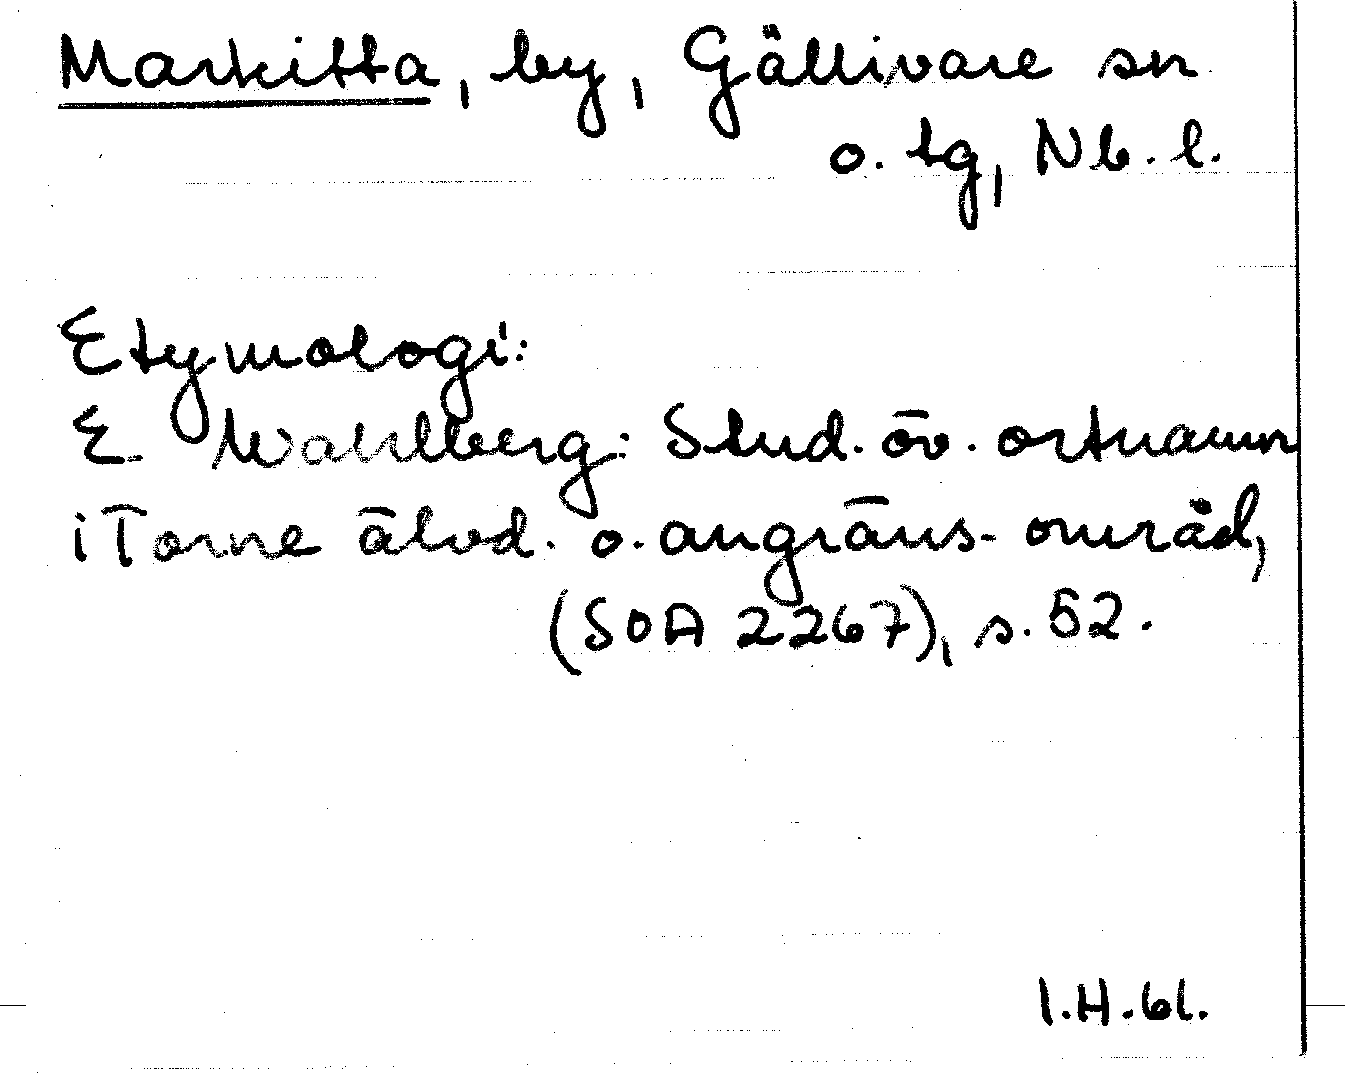 Markitta, by, Gällivare sn
o. tg, Nb. l.
Etymologi:
E Wahlberg: Stud. öv. ortnamn
i Torne älvd. o. angräns. område,
(SOA 2267), s. 52.
I.H.61.